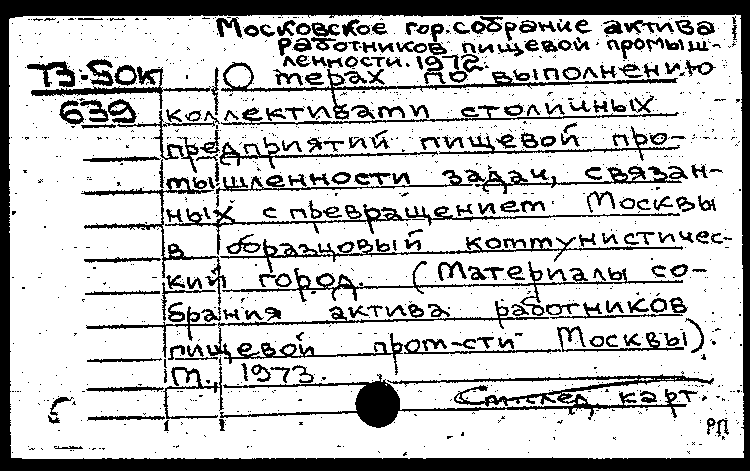 Московское гор. собрание актива
работников пищевой промыш-
ленности. 1972.
Т3-50к О мерах по выполнению
639 коллективами столичных
предприятий пищевой про-
мышленности задач, связан-
ных с превращением Москвы
в образцовый коммунистичес-
кий город. (Материалы со-
брания актива работников
пищевой пром-сти Москвы).
М., 1973.
См. след. карт.
РП